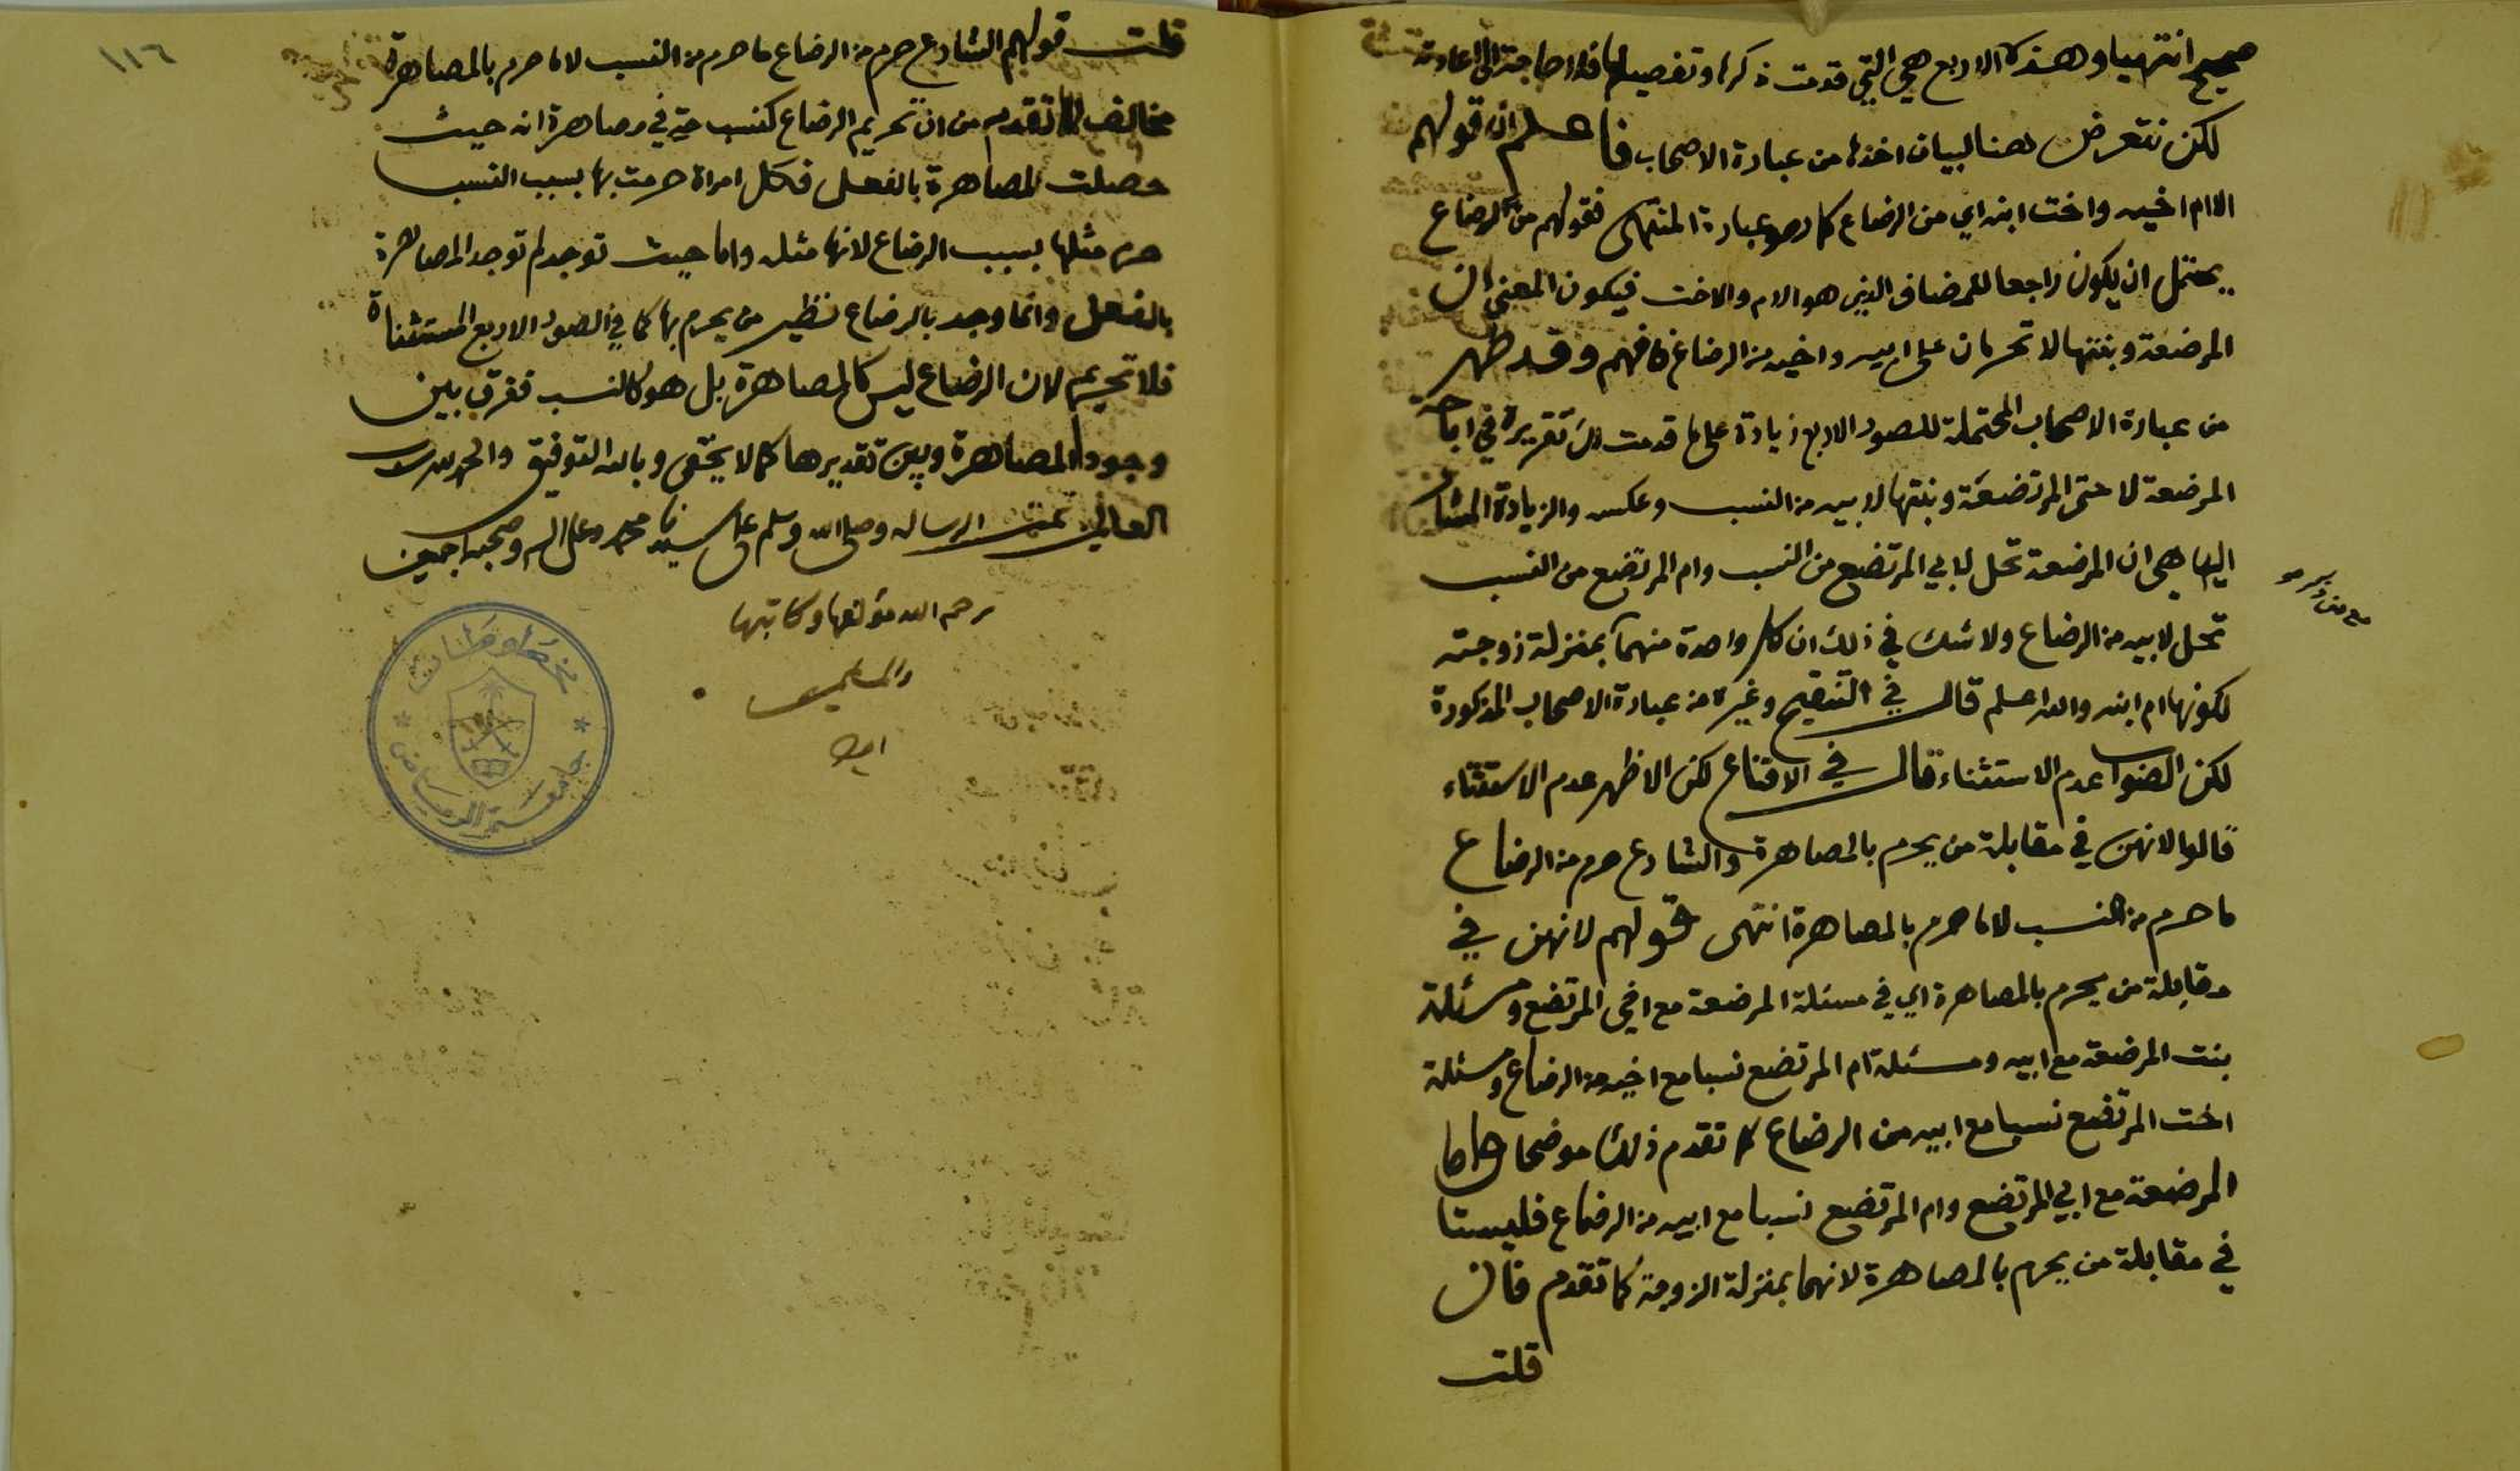 صحيح انتهيا وهذه الاربع هي التي قدمت ذكرها وتفصيلها فلا حاجة الى اعادته
لكن نتعرض هنا لبيان اخذها من عبارة الاصحاب فاعلم ان قولهم
الا ام اخيه واخت ابنه اي من الرضاع كما هو عبارة المنتهى فقولهم من الرضاع
يحتمل ان يكون راجعا للمضاف الذي هو الام والاخت فيكون المعنى ان
المرضعة وبنتها لا تحرمان على ابيه واخيه من الرضاع فافهم وقد ظهر
من عبارة الاصحاب المحتملة للصور الاربع زيادة على ما قدمت لك تقريره في اباحة
المرضعة لاخى المرتضعة وبنتها لابيه من النسب وعكسه والزيادة المشار
اليها هي ان المرضعة تحل لابي المرتضع من النسب وام المرتضع من النسب
تحل لابيه من الرضاع ولا شك في ذلك ان كل واحدة منهما بمنزلة زوجته
لكونها ام ابنه والله اعلم قال في التنقيح وغيره من عبارة الاصحاب المذكورة
لكن الصواب عدم الاستثناء قال في الاقناع لكن الاظهر عدم الاستثناء
قالوا لانهن في مقابلة من يحرم بالمصاهرة والشارع حرم من الرضاع
ما حرم من النسب لا ما حرم بالمصاهرة انتهى قولهم لانهن في
مقابلة من يحرم بالمصاهرة اي في مسئلة المرضعة مع اخي المرتضع ومسئلة
بنت المرضعة مع ابيه ومسئلة ام المرتضع نسبا مع اخيه من الرضاع ومسئلة
اخت المرتضع نسبا مع ابيه من الرضاع كما تقدم ذلك موضحا واما
المرضعة مع ابي المرتضع وام المرتضع نسبا مع ابيه من الرضاع فليستا
في مقابلة من يحرم بالمصاهرة لانهما بمنزلة الزوجة كما تقدم فان
قلت
١١٦
قلت قولهم الشارع حرم من الرضاع ما حرم من النسب لا ما حرم بالمصاهرة
مخالف لما تقدم من ان تحريم الرضاع كنسب حتى في مصاهرة انه حيث
حصلت المصاهرة بالفعل فكل امراة حرمت بها بسبب النسب
حرم مثلها بسبب الرضاع لانها مثله واما حيث توجد لم توجد المصاهرة
بالفعل وانما وجد بالرضاع نظير من يحرم بها كما في الصور الاربع المستثناة
فلا تحريم لان الرضاع ليس كالمصاهرة بل هو كالنسب ففرق بين
وجود المصاهرة وبين تقديرها كما لا يخفى وبالله التوفيق والحمد لله رب
العالمين تمت الرساله وصلى الله وسلم على سيدنا محمد وعلى اله وصحبه اجمعين
رحم الله مؤلفها وكاتبها
والمسلمين
مخطوطات
جامعة الرياض